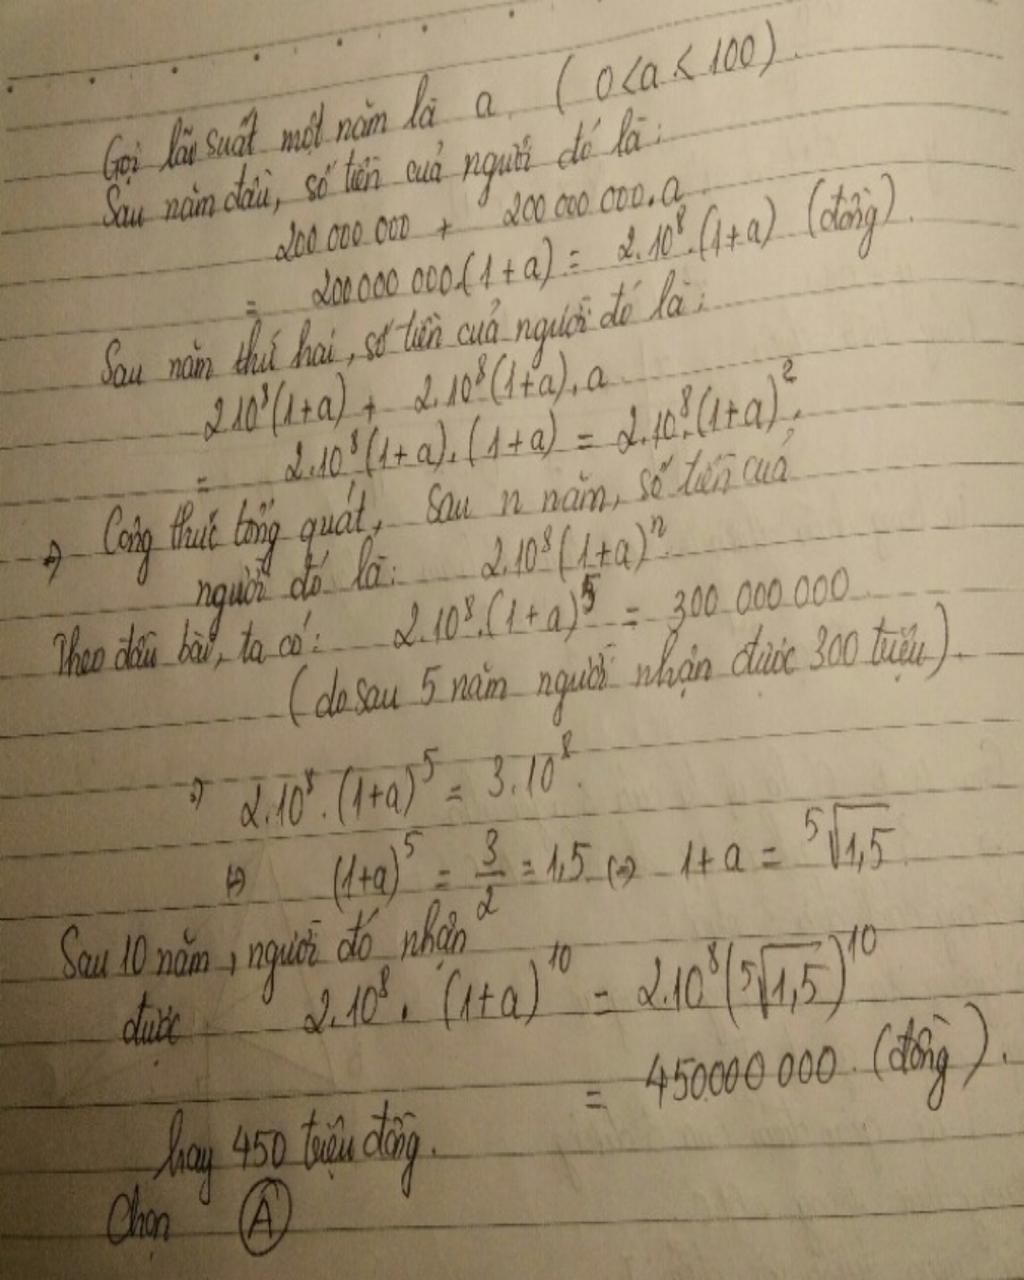 Gọi lãi suất một năm là a ( 0 < a < 100 ).
Sau năm đầu, số tiền của người đó là:
200 000 000 + 200 000 000.a
= 200 000 000.(1+a) = 2.10⁸.(1+a) (đồng).
Sau năm thứ hai, số tiền của người đó là:
2.10⁸(1+a) + 2.10⁸(1+a).a
= 2.10⁸(1+a).(1+a) = 2.10⁸.(1+a)².
=> Công thức tổng quát, sau n năm, số tiền của
người đó là: 2.10⁸(1+a)ⁿ
Theo đầu bài, ta có: 2.10⁸.(1+a)⁵ = 300 000 000
(do sau 5 năm người nhận được 300 triệu).
=> 2.10⁸.(1+a)⁵ = 3.10⁸.
<=> (1+a)⁵ = 3/2 = 1,5 <=> 1+a = ⁵√1,5
Sau 10 năm, người đó nhận
được 2.10⁸.(1+a)¹⁰ = 2.10⁸(⁵√1,5)¹⁰
= 450000 000 (đồng).
hay 450 triệu đồng.
Chọn A